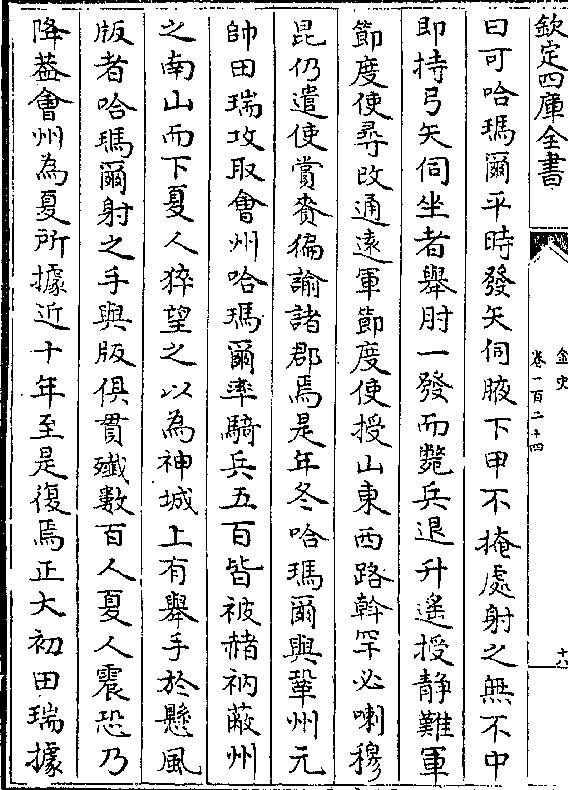 欽定四庫全書
金史
卷一百二十四
十八
曰可哈瑪爾平時發矢伺腋下甲不掩處射之無不中
即持弓矢伺坐者舉肘一發而斃兵退升遙授静難軍
節度使尋改通逺軍節度使授山東西路斡罕必喇穆
昆仍遣使賞賚徧諭諸郡焉是年冬哈瑪爾與鞏州元
帥田瑞攻取㑹州哈瑪爾率騎兵五百皆被赭衲蔽州
之南山而下夏人猝望之以為神城上有舉手於懸風
版者哈瑪爾射之手與版俱貫殱數百人夏人震恐乃
降葢㑹州為夏所據近十年至是復焉正大初田瑞據